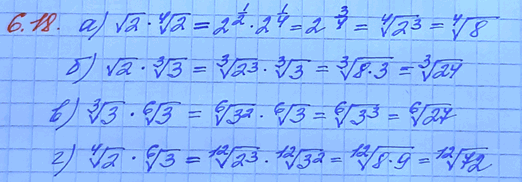 6.18. а) √2 · ⁴√2 = 2^{1/2} · 2^{1/4} = 2^{3/4} = ⁴√2³ = ⁴√8
б) √2 · ³√3 = ³√2³ · ³√3 = ³√8·3 = ³√24
в) ³√3 · ⁶√3 = ⁶√3² · ⁶√3 = ⁶√3³ = ⁶√27
г) ⁴√2 · ⁶√3 = ¹²√2³ · ¹²√3² = ¹²√8·9 = ¹²√72